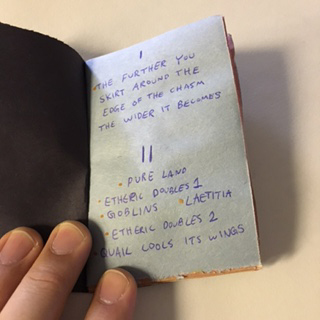 I
• THE FURTHER YOU
SKIRT AROUND THE
EDGE OF THE CHASM
THE WIDER IT BECOMES
II
• PURE LAND
• ETHERIC DOUBLES 1
• GOBLINS • LAETITIA
• ETHERIC DOUBLES 2
• QUAIL COOLS ITS WINGS